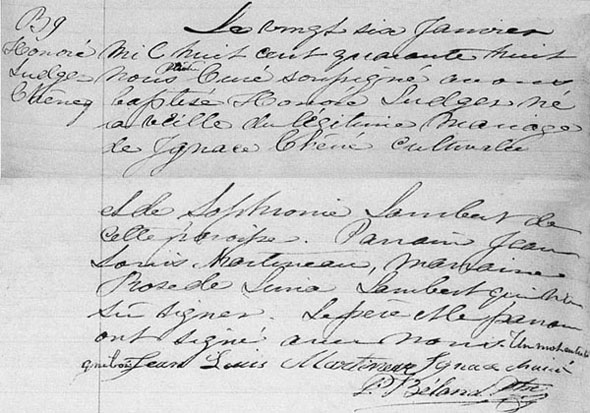 B9
Honoré
Ludger
Chéné
Le vingt six Janvier
mil huit cent quarante huit
nous Ptre Curé soussigné avons
baptisé Honoré Ludger né
la veille du légitime mariage
de Ignace Chéné cultivateur
et de Sophronie Lambert de
cette paroisse. Parrain Jean
Louis Martineau, marraine
Rose de Lima Lambert qui n'a
su signer. Le père et le parrain
ont signé avec nous. Un mot entre
Jean Louis Martineau Ignace
P. Béland Ptre